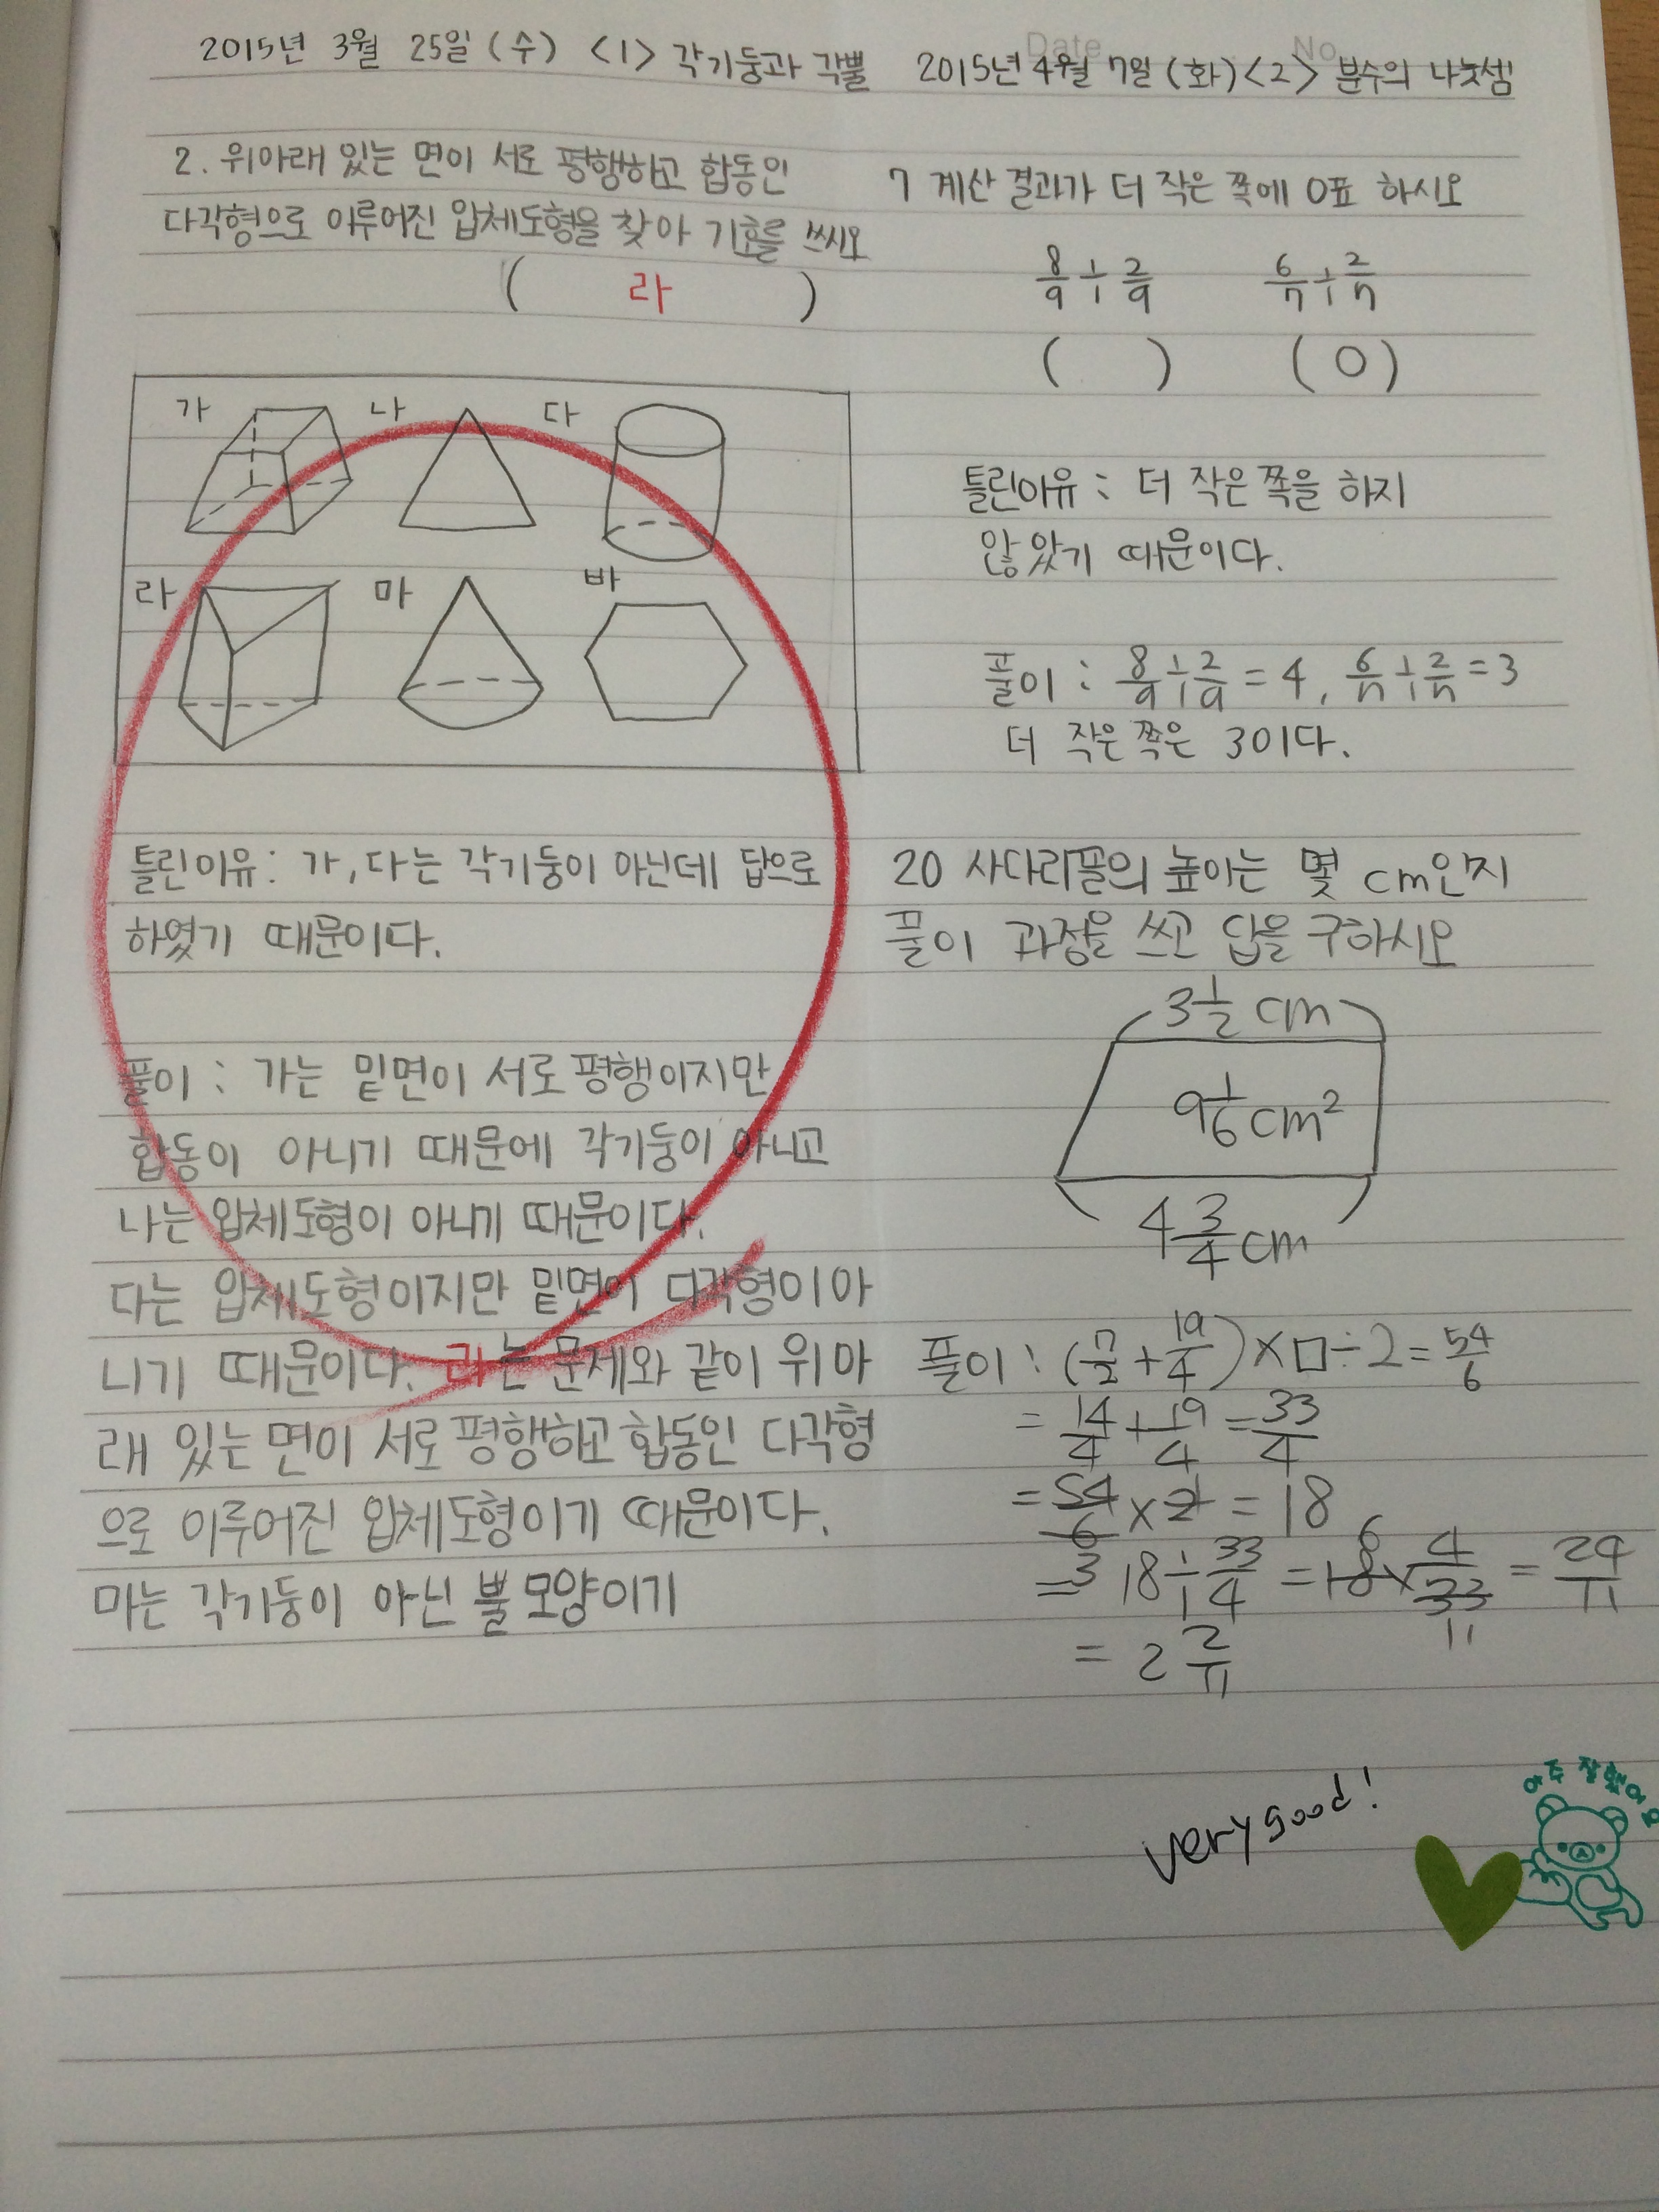 2015년 3월 25일 (수) <1> 각기둥과 각뿔
2. 위아래 있는 면이 서로 평행하고 합동인
다각형으로 이루어진 입체도형을 찾아 기호를 쓰시오
( 라 )
가 나 다
라 마 바
틀린이유 : 가, 다는 각기둥이 아닌데 답으로
하였기 때문이다.
풀이 : 가는 밑면이 서로 평행이지만
합동이 아니기 때문에 각기둥이 아니고
나는 입체도형이 아니기 때문이다.
다는 입체도형이지만 밑면이 다각형이아
니기 때문이다. 라는 문제와 같이 위아
래 있는 면이 서로 평행하고 합동인 다각형
으로 이루어진 입체도형이기 때문이다.
마는 각기둥이 아닌 뿔모양이기
Date No.
2015년 4월 7일 (화) <2> 분수의 나눗셈
7 계산 결과가 더 작은 쪽에 O표 하시오
8/9 ÷ 2/9 6/7 ÷ 2/7
( ) ( O )
틀린이유 : 더 작은 쪽을 하지
않았기 때문이다.
풀이 : 8/9 ÷ 2/9 = 4, 6/7 ÷ 2/7 = 3
더 작은 쪽은 3이다.
20 사다리꼴의 높이는 몇 cm인지
풀이 과정을 쓰고 답을 구하시오
3 1/2 cm
9 1/6 cm²
4 3/4 cm
풀이 : (7/2 + 19/4) × □ ÷ 2 = 54/6
= 14/4 + 19/4 = 33/4
= 54/6 × 2 = 18
3
= 18 ÷ 33/4 = 18 × 4/33 = 24/11
6 11
= 2 2/11
very good!
아주 잘했어요